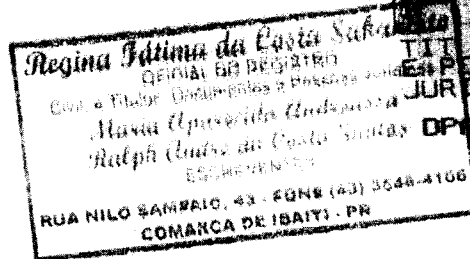 Regina Fátima da Costa
OFICIAL DO REGISTRO
Civil e Títulos Documentos e Pessoas
Maria Aparecida
Ralph Andre da Costa Santos
ESCREVENTES
RUA NILO SAMPAIO, 43 - FONE (43) 3546-4166
COMARCA DE IBAITI - PR
TIT
ESPE
JUR